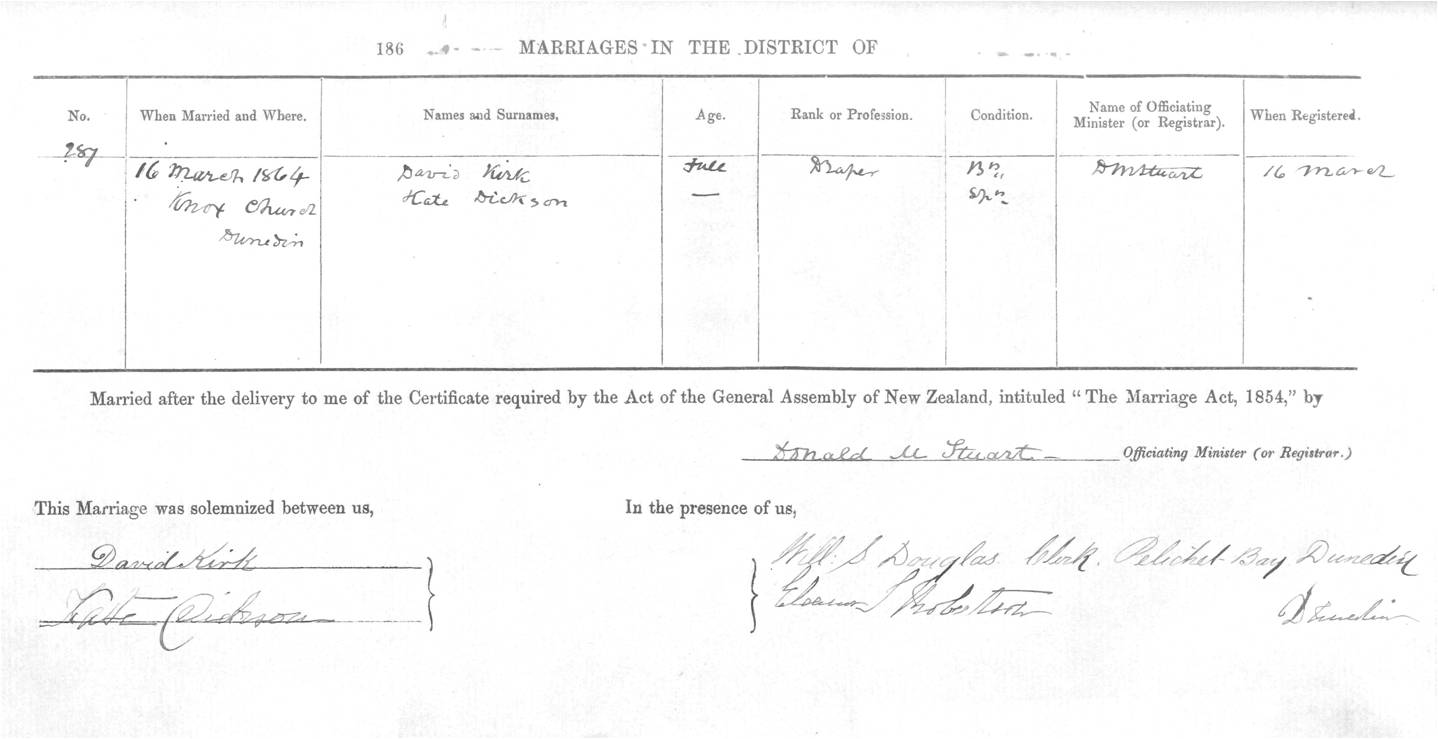 186 MARRIAGES IN THE DISTRICT OF
No. When Married and Where. Names and Surnames, Age. Rank or Profession. Condition. Name of Officiating Minister (or Registrar). When Registered.
287
16 March 1864 David Kirk Full Draper Br. DMStuart 16 March
Knox Church Kate Dickson — Spr.
Dunedin
Married after the delivery to me of the Certificate required by the Act of the General Assembly of New Zealand, intituled "The Marriage Act, 1854," by
Donald M Stuart Officiating Minister (or Registrar.)
This Marriage was solemnized between us, In the presence of us,
David Kirk Will: S Douglas Clerk. Pelichet Bay Dunedin
Kate Dickson Eleanor S Robertson Dunedin